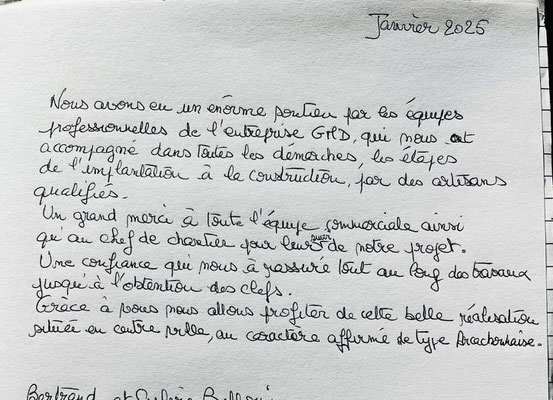 Janvier 2025
Nous avons eu un énorme soutien par les équipes
professionnelles de l'entreprise GMD, qui nous ont
accompagné dans toutes les démarches, les étapes
de l'implantation à la construction, par des artisans
qualifiés.
Un grand merci à toute l'équipe commerciale ainsi
qu'au chef de chantier pour leur suivi de notre projet.
Une confiance qui nous à rassuré tout au long des travaux
jusqu'à l'obtention des clefs.
Grâce à vous nous allons profiter de cette belle réalisation
située en centre ville, au caractère affirmé de type Arcachonnaise.
Bertrand et Sylvie